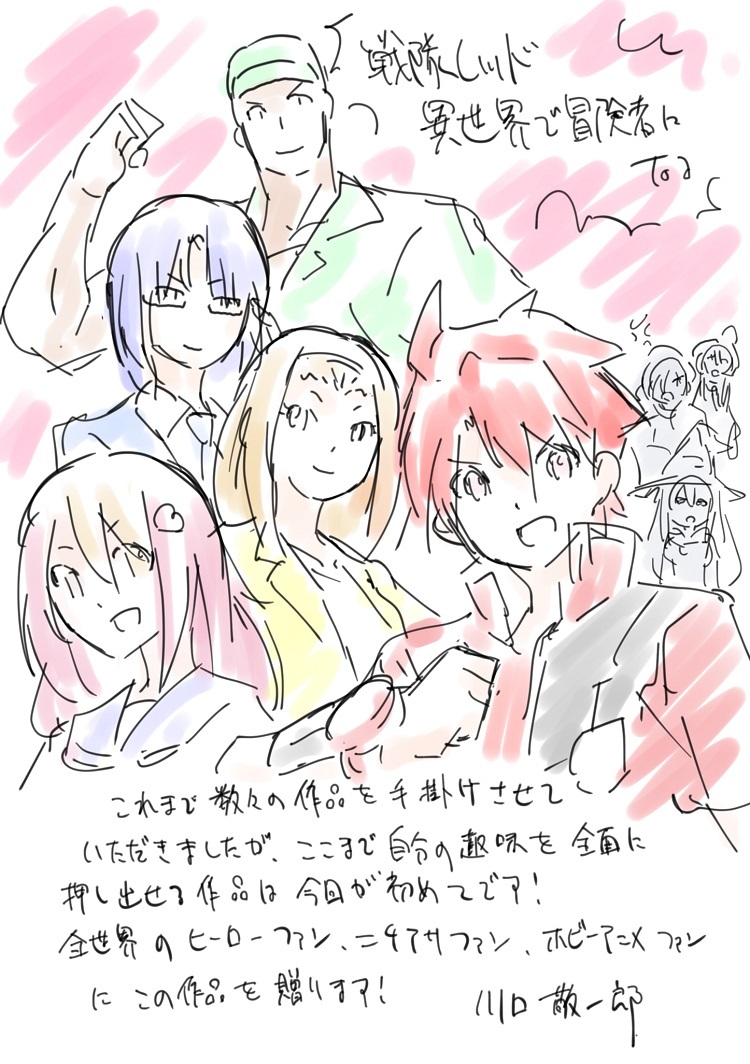 戦隊レッド
異世界で冒険者に
なる
これまで数々の作品を手掛けさせて
いただきましたが、ここまで自分の趣味を全面に
押し出せる作品は今回が初めてです!
全世界のヒーローファン、ニチアサファン、ホビーアニメファン
にこの作品を贈ります!
川口敬一郎